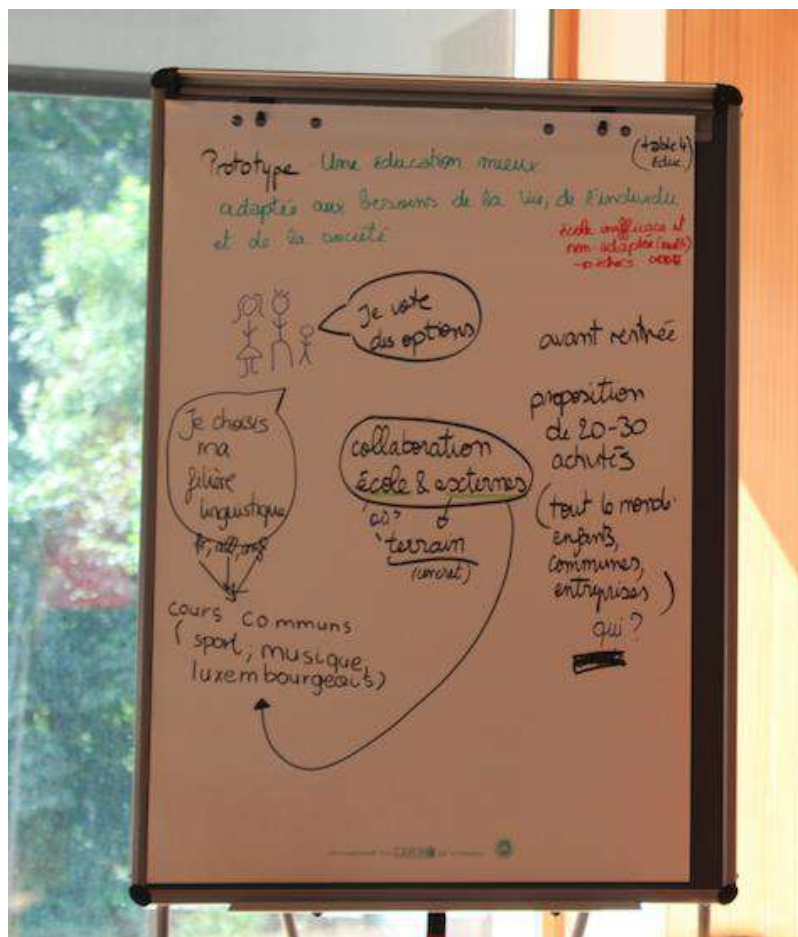 Prototype Une éducation mieux
adaptée aux besoins de la vie, de l'individu
et de la société
(table 4
Educ.)
école inefficace et
non-adaptée
→ échecs
Je vote
des options
avant rentrée
Je choisis
ma
filière
linguistique
fr, all, ang
collaboration
école & externes
"où"
terrain
(concret)
proposition
de 20-30
activités
(tout le monde:
enfants,
communes,
entreprises)
qui ?
cours communs
(sport, musique,
luxembourgeois)